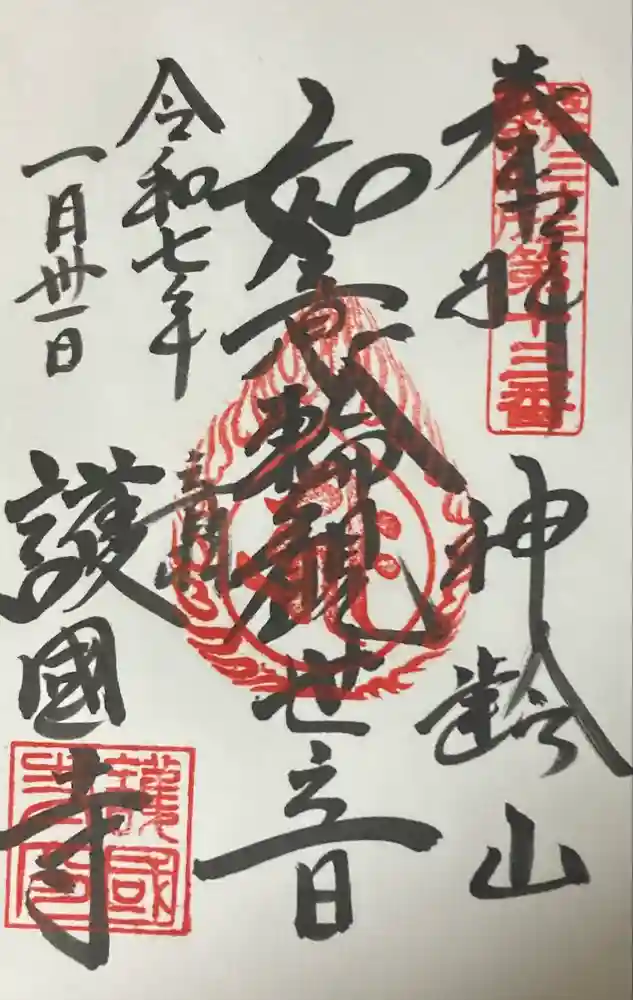 奉拝
第十三番
神齢山
如意輪観世音
令和七年
一月卅一日
護國寺
護國
寺印